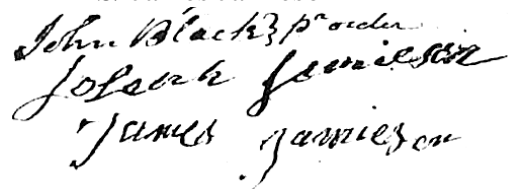 John Black } pr order
Joseph Jamieson
James Jamieson